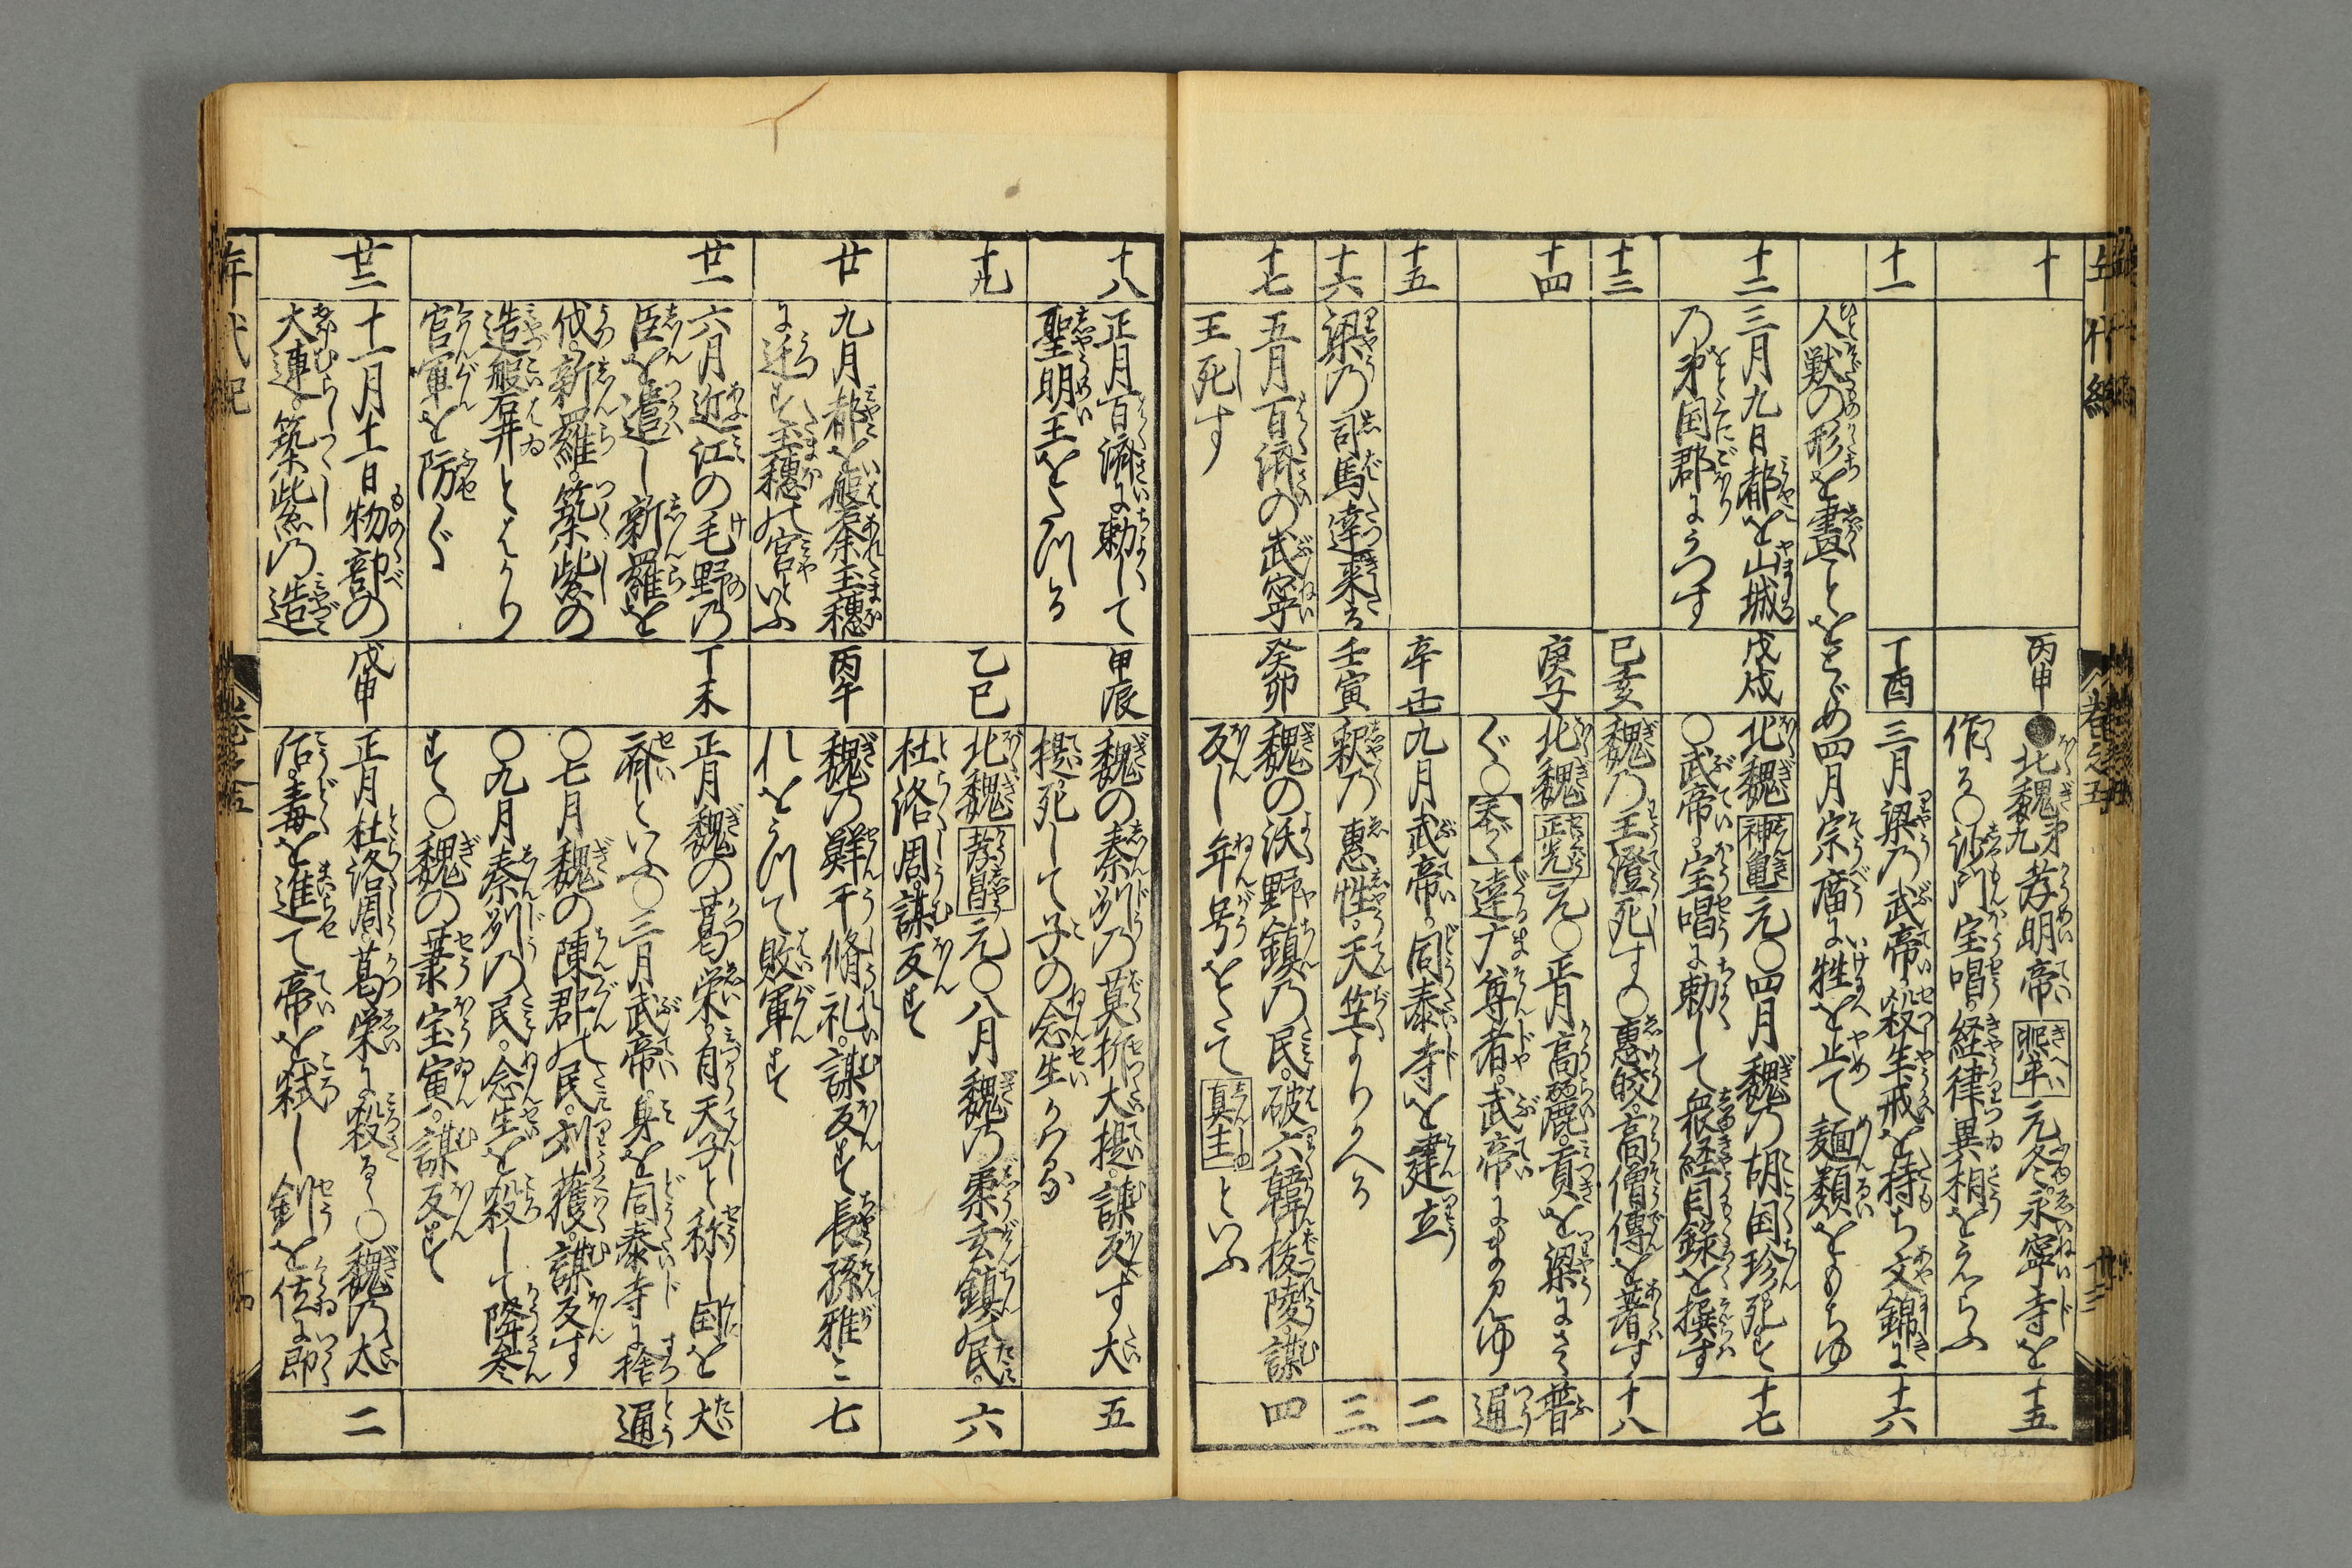 十
丙申
●北魏第九孝明帝熙平元冬永寧寺を
作る〇沙門宝唱。経律異相をえらふ
十五
十一
丁酉
三月梁乃武帝。殺生戒を持ち文錦に
人獣の形を畫ことをとゞめ四月宗廟に牲を止て麺類をもちゆ
十六
十二
三月九日都を山城
乃弟国郡にうつす
戊戌
北魏神亀元〇四月魏乃胡国珍死す
〇武帝。宝唱に勅して衆経目録を撰す
十七
十三
己亥
魏乃王澄死す〇惠皎。高僧傳を著す
十八
十四
庚子
北魏正光元〇正月高麗。貢を梁にさゝ
ぐ〇達广尊者。武帝にまみゆ
普通
十五
辛丑
九月武帝。同泰寺を建立
二
十六
梁乃司馬達来る
壬寅
釈乃惠性。天竺よりかへる
三
十七
五月百済の武寧
王死す
癸卯
魏の沃野鎮乃民。破六韓抜陵。謀
反し年号をたて真王といふ
四
十八
正月百済に勅して
聖明王をたつる
甲辰
魏の秦州乃莫折大提。謀反す大
提死して子の念生かはる
五
十九
乙巳
北魏孝昌元〇八月魏乃柔玄鎮乃民。
杜洛周。謀反す
六
廿
九月都を磐余玉穗
に迁す玉穗の宮といふ
丙午
魏乃鮮于脩礼。謀反す長孫雅こ
れをうつて敗軍す
七
廿一
六月近江の毛野乃
臣を遣し新羅を
伐。新羅。築紫の
造磐石井とはかり
官軍を防ぐ
丁未
正月魏の葛栄。自天子と称し国を
斉といふ〇三月武帝。身を同泰寺に捨
〇七月魏の陳郡の民。刘獲。謀反す
〇九月秦州乃民。念生を殺して降参
す〇魏の萧宝寅。謀反す
大通
廿二
十一月十一日物部の
大連。築紫乃造
戊申
正月杜洛周。葛栄に殺さる〇魏乃太
后。毒を進て帝を弑し釗を位に即
二
年代紀